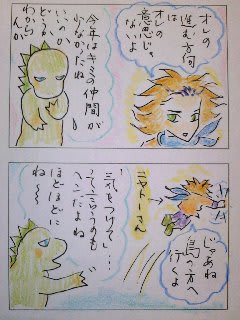 オレの
進む方向
は
オレの
意思じゃ
ないよ
今年はキミの仲間が
少なかったね
いいのか
どうなのか
わからん
が
じゃあね
島の方へ
行くよ
ニャトーさん
気をつけて…
って言うのも
ヘンだよね
ほどほどに
ね〜